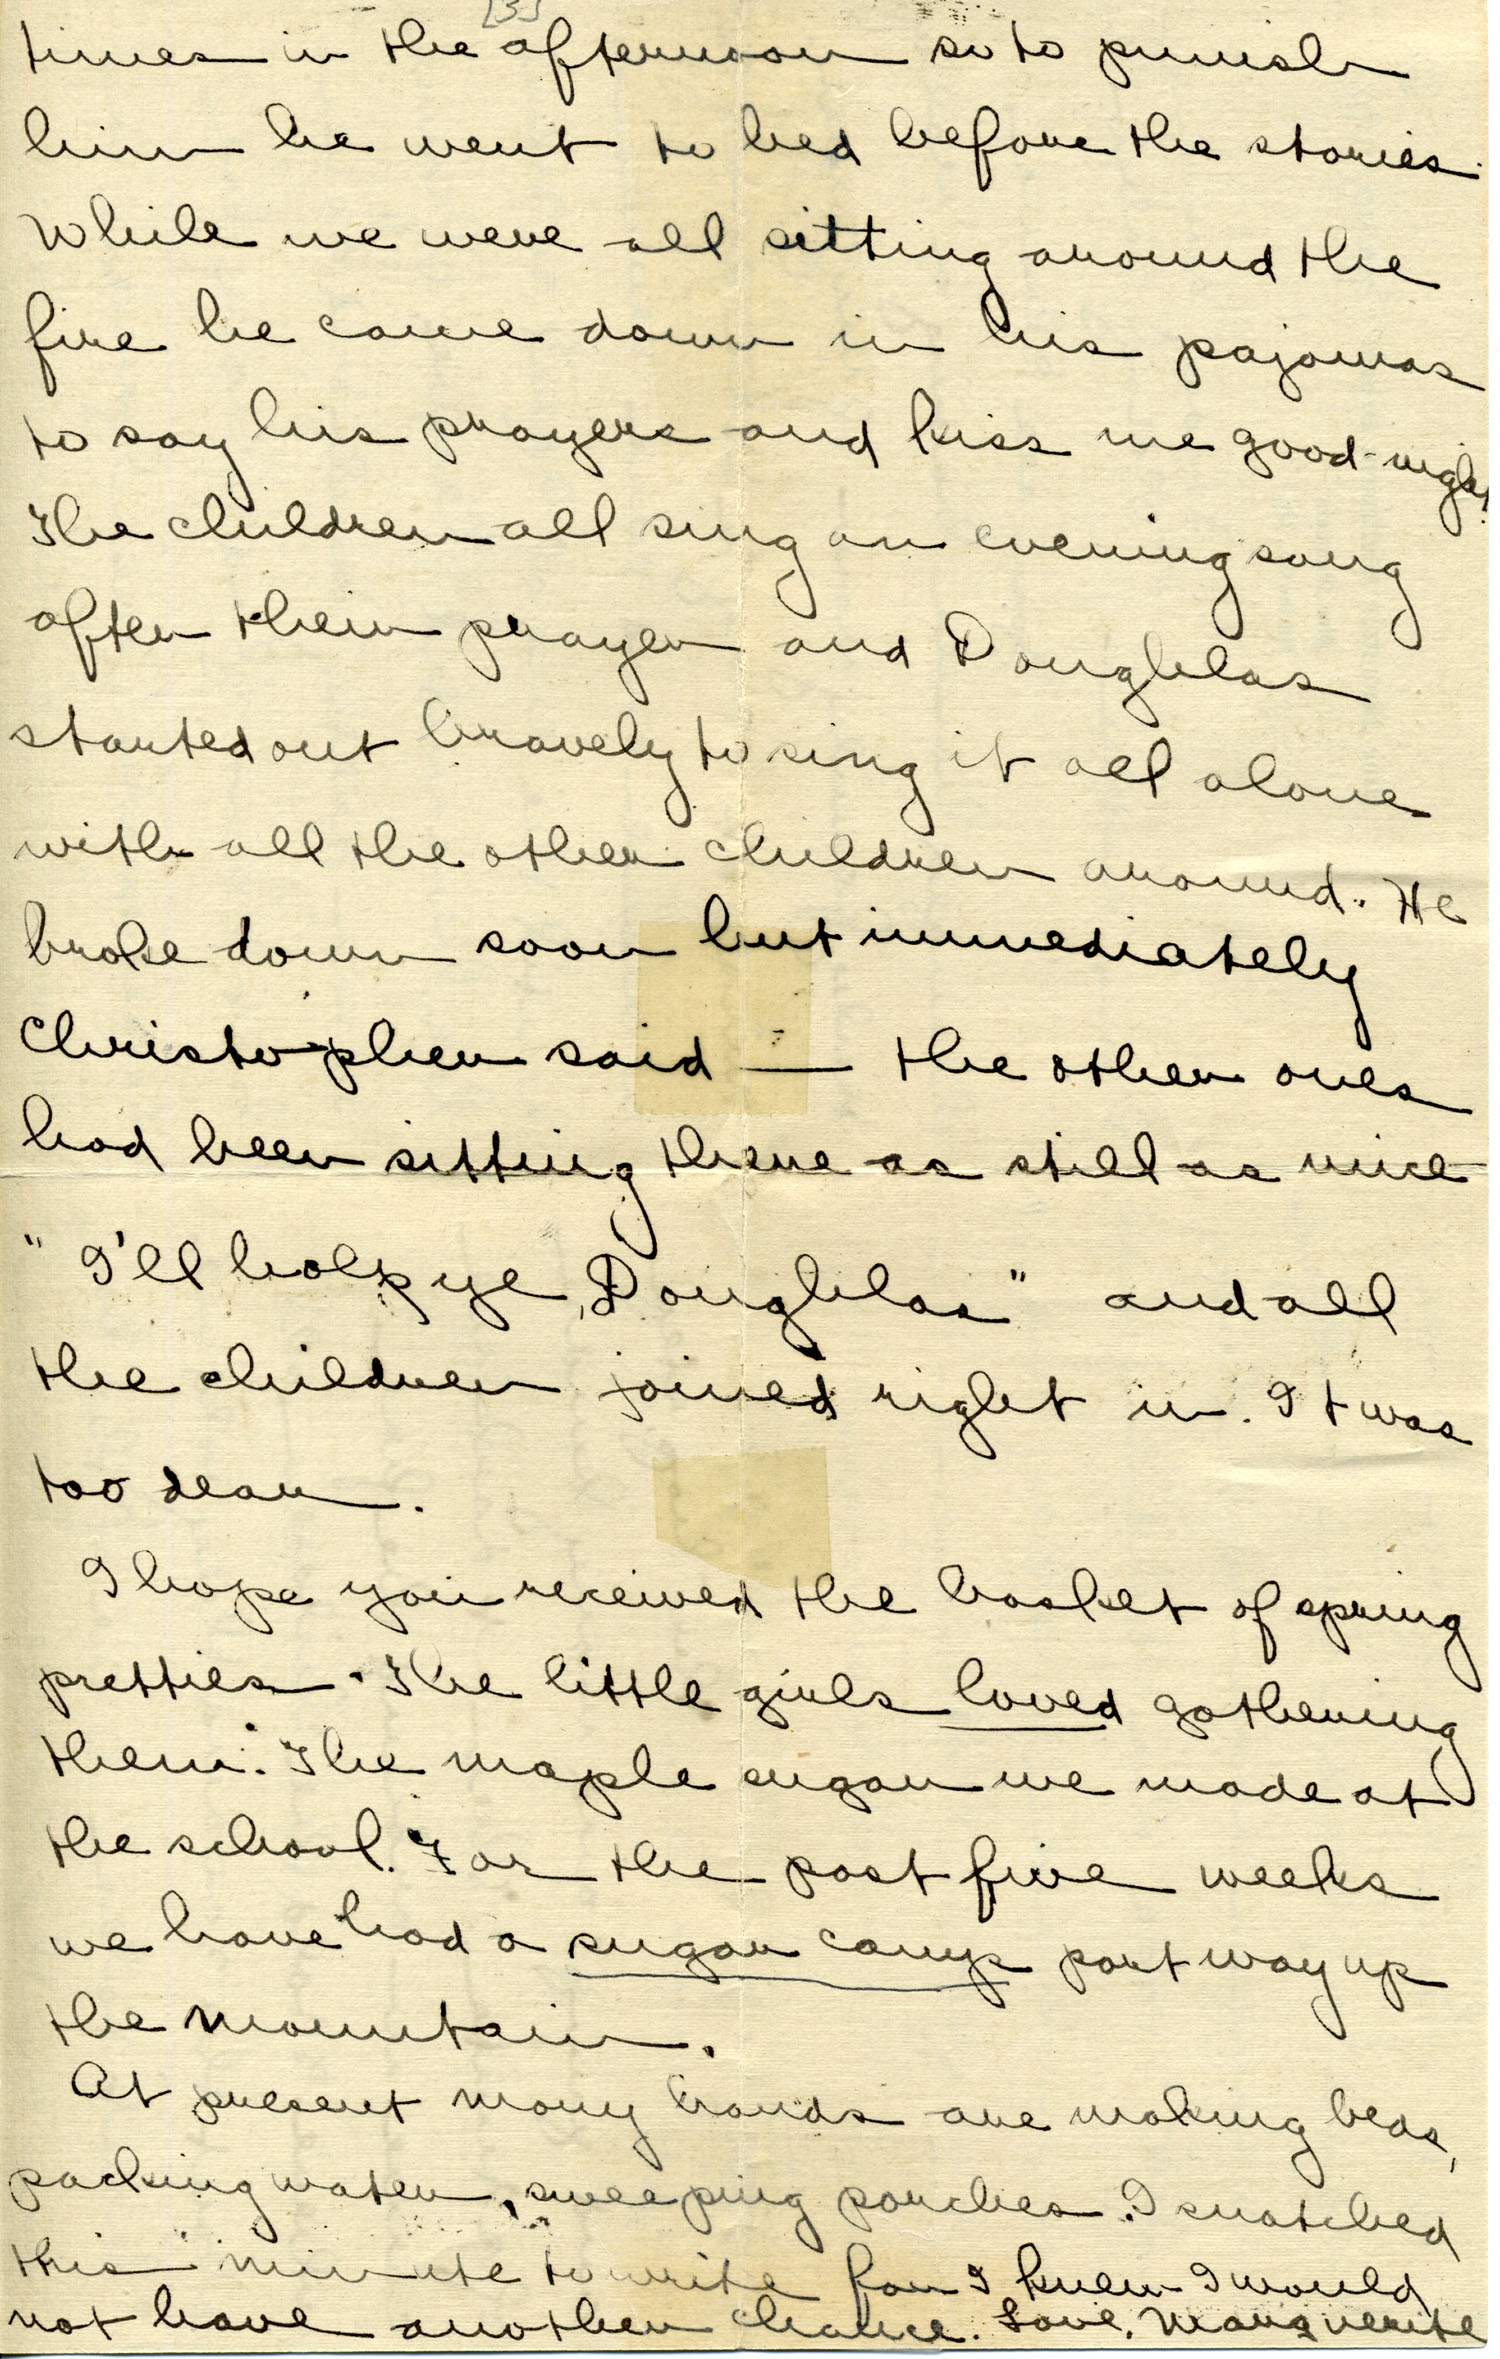 [3]
times in the afternoon so to punish
him he went to bed before the stories.
While we were all sitting around the
fire he came down in his pajamas
to say his prayers and kiss me good-night.
The children all sing an evening song
after their prayer and Doughlas
started out bravely to sing it all alone
with all the other children around. He
broke down soon but immediately
Christopher said — the other ones
had been sitting there as still as mice
"I'll holp ye, Doughlas" and all
the children joined right in. It was
too dear.
I hope you received the basket of spring
pretties. The little girls loved gathering
them. The maple sugar we made at
the school. For the past five weeks
we have had a sugar camp part way up
the mountain.
At present many hands are making beds,
packing water, sweeping porches. I snatched
this minute to write for I knew I would
not have another chance. Love, Marguerite